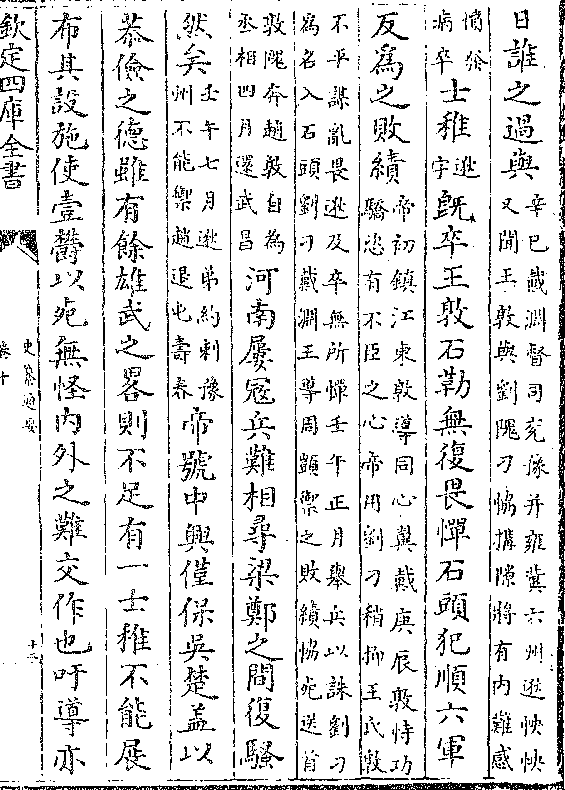 日誰之過與
辛巳戴淵督司兗豫并雍冀六州逖怏怏
又聞王敦與劉隗刁協搆隙將有內難感
憤發
病卒
士稚
逖
字
既卒王敦石勒無復畏憚石頭犯順六軍
反為之敗績
帝初鎮江東敦導同心翼戴庚辰敦恃功
驕恣有不臣之心帝用劉刁稍抑王氏敦
不平謀亂畏逖及卒無所憚壬午正月舉兵以誅劉刁
為名入石頭劉刁戴淵王導周顗禦之敗績協死送首
敦隗奔趙敦自為
丞相四月還武昌
河南屢冦兵難相尋梁鄭之間復騷
然矣
壬午七月逖弟約刺豫
州不能禦趙退屯壽春
帝號中興僅保吳楚葢以
恭儉之德雖有餘雄武之畧則不足有一士稚不能展
布其設施使壹欝以死無怪內外之難交作也吁導亦
欽定四庫全書
史纂通要
卷十